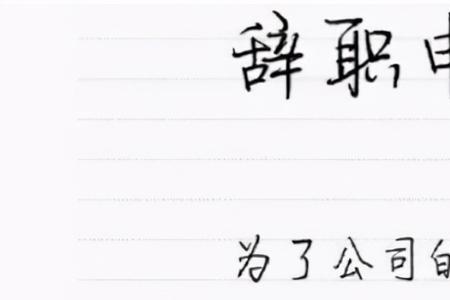 辞职申
为了公司的